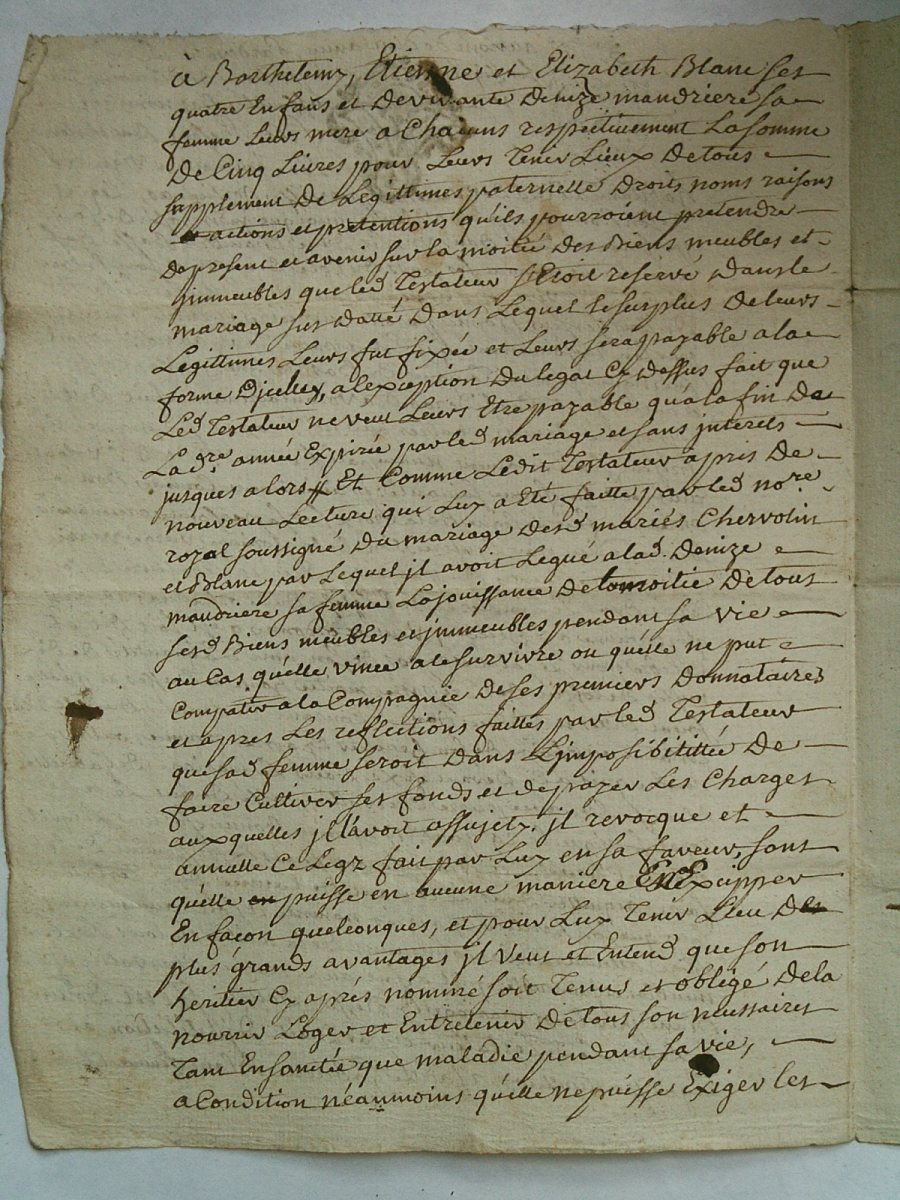 à Barthelemy, Etienne et Elizabeth Blanc ses
quatre Enfans et devivante denize mandriere sa
femme Leurs mere a Chacuns respectivement La somme
de Cinq Livres pour Leurs Tenir Lieux de tous
supplement de Legittimes paternelle droits noms raisons
actions et pretentions qu'ils pourroient pretendre
de present et avenir sur la moitié des Biens meubles et
jmmeubles que led Testateur s'Etoit reservé dans le
mariage sus datté dans Lequel le surplus de leurs
Legittimes Leurs fut fixée et Leurs sera payable a la
forme a lexception du legat Cy dessus fait que
Led Testateur ne veut Leurs Etre payable qu'a la fin de
La dre année Expirée par led mariage et sans jnterets
jusques alors // Et Comme Ledit Testateur apris de
nouveau Lecture qui Luy a Eté faitte par led nore
royal soussigné du mariage desd mariés Chervolin
et Blanc par Lequel jl avoit Legué a lad denize
mandriere sa femme La jouissance de la moitié de tous
sesd Biens meubles et jmmeubles pendant sa vie
au Cas qu'elle vince a le survivre ou qu'elle ne put
Compatir a la Compagnie de ses premiers donnataires
et apres Les reflections faittes par led Testateur
que sad femme seroit dans L'jmposibilittée de
faire Cultiver ses fonds et de payer Les Charges
aux quelles jl l'avoit assujety, jl revocque et
annulle Ce Legz fait par Luy en sa faveur, sans
qu'elle puisse en aucune maniere Excipper
En façon quelconques, et pour Luy Tenir Lieu de
plus grands avantages jl veut et Entend que son
heritier Cy aprés nommé soit Tenus et obligé de la
nourrir Loger et Entretenir de tous son necessaires
Tant En santée que maladie pendant sa vie,
a Condition néaumoins qu'elle ne puisse Exiger les